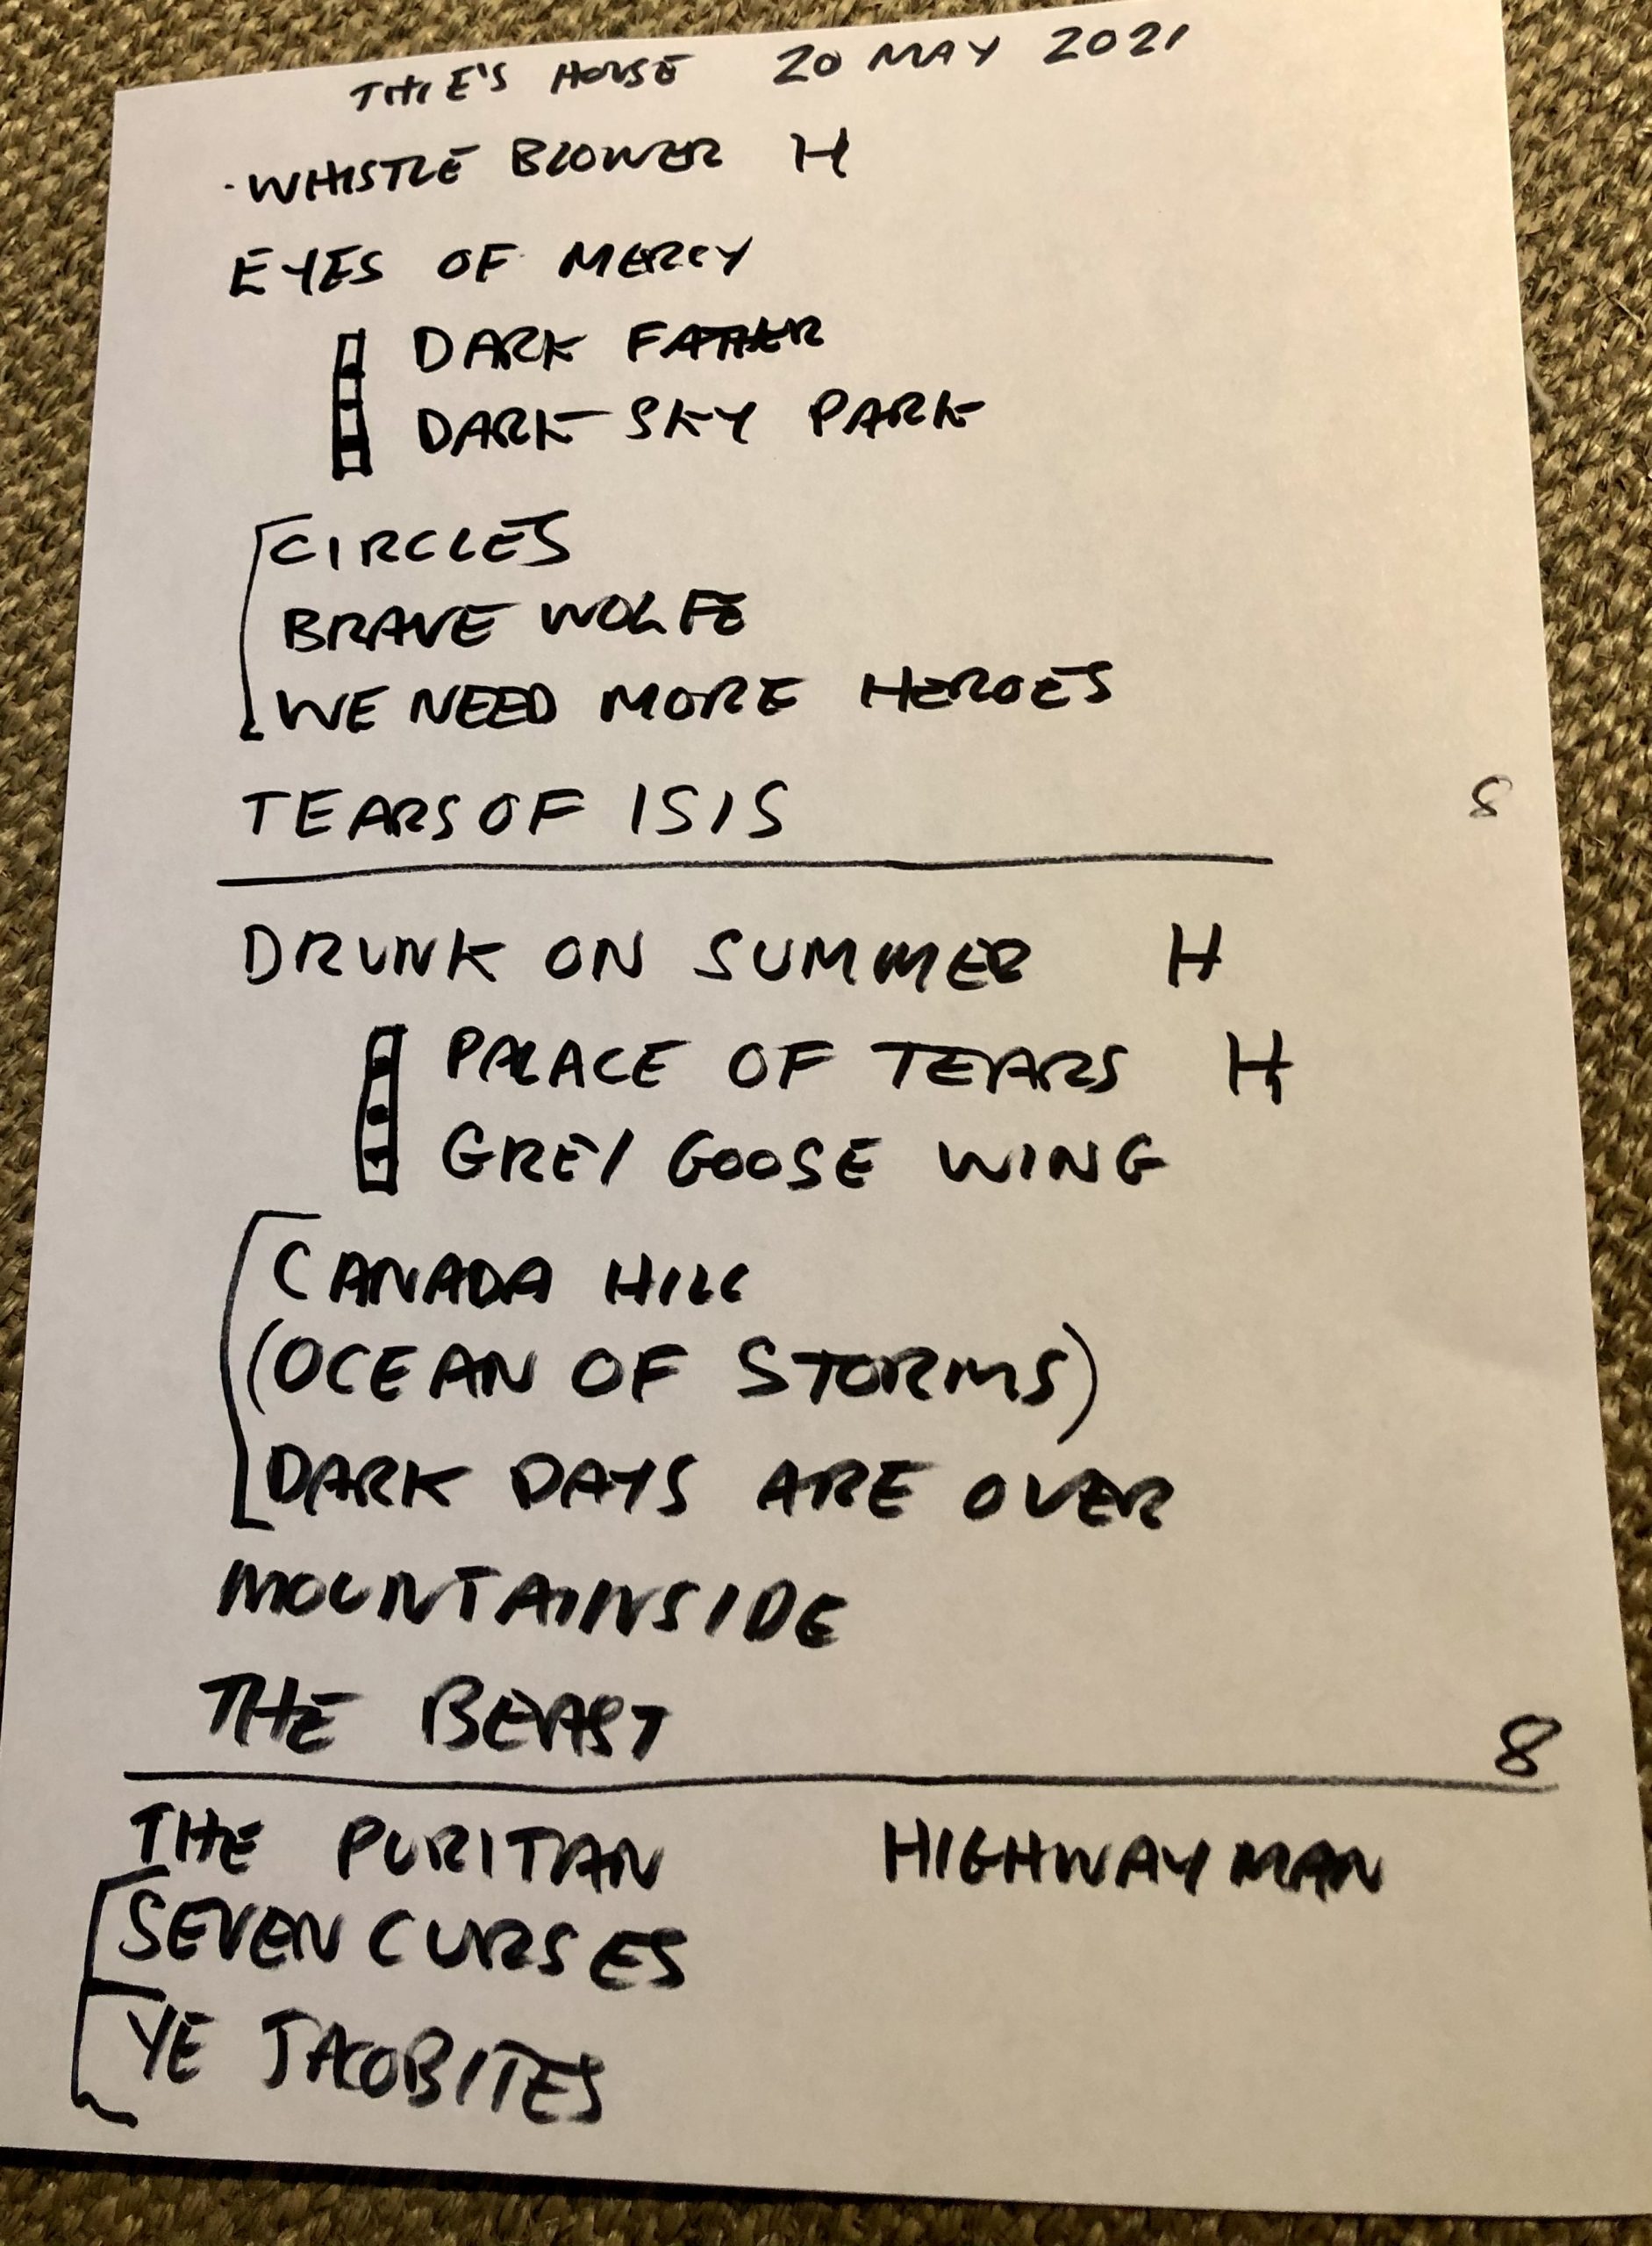 THIE'S HOUSE 20 MAY 2021
·WHISTLE BLOWER H
EYES OF MERCY
DARK FATHER
DARK SKY PARK
CIRCLES
BRAVE WOLFE
WE NEED MORE HEROES
TEARS OF ISIS 8
DRUNK ON SUMMER H
PALACE OF TEARS H
GREY GOOSE WING
CANADA HILL
(OCEAN OF STORMS)
DARK DAYS ARE OVER
MOUNTAINSIDE
THE BEAST 8
THE PURITAN HIGHWAYMAN
SEVEN CURSES
YE JACOBITES